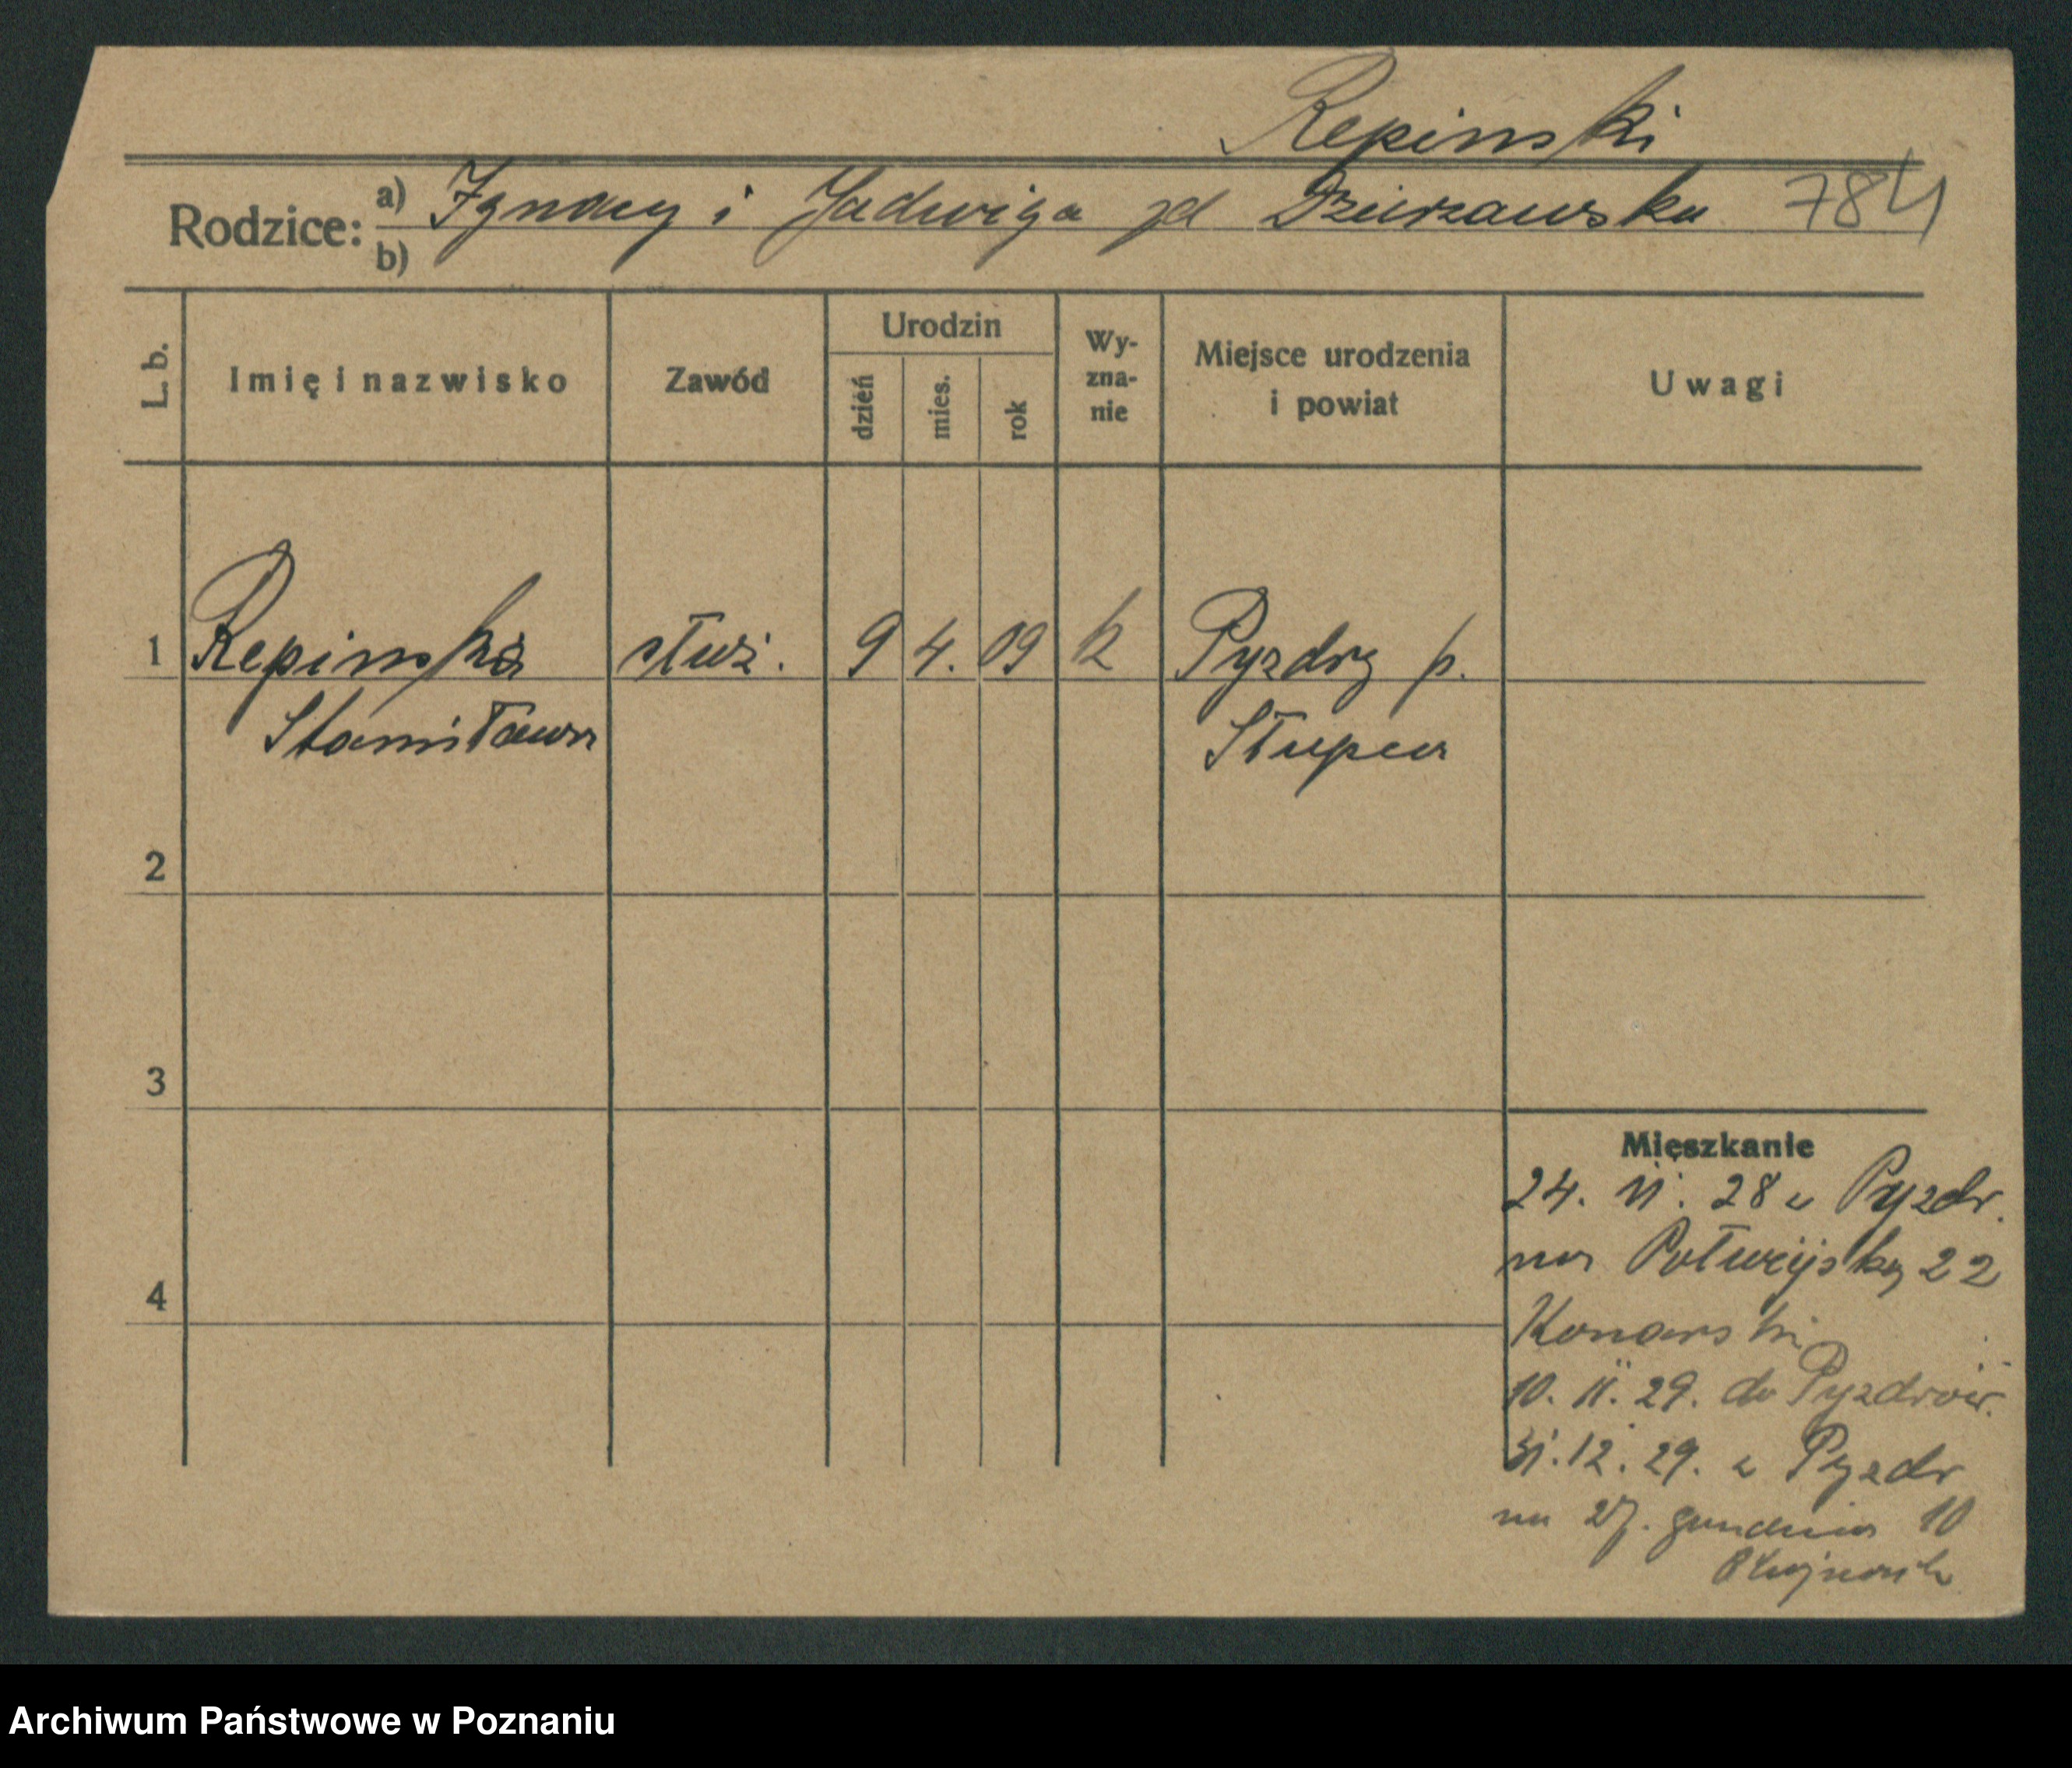 Repinski
Rodzice: a) Ignacy i Jadwiga zd Dzierzawska 784
b)
L. b.
Imię i nazwisko
Zawód
Urodzin
dzień
mies.
rok
Wy-
zna-
nie
Miejsce urodzenia
i powiat
Uwagi
1 Repinska służ. 9 4. 09 k Pyzdry p.
Stanisława Słupca
2
3
4
Mieszkanie
24. 11. 28 z Pyzdr.
na Połwiejską 22
Konarski
10. 11. 29. do Pyzdrów.
31. 12. 29. z Pyzdr
na 27. grudnia 10
Archiwum Państwowe w Poznaniu